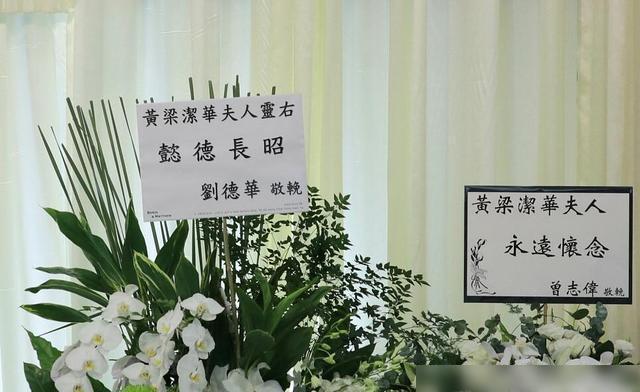 黃梁潔華夫人靈右
懿德長昭
劉德華 敬輓
黃梁潔華夫人
永遠懷念
曾志偉 敬輓